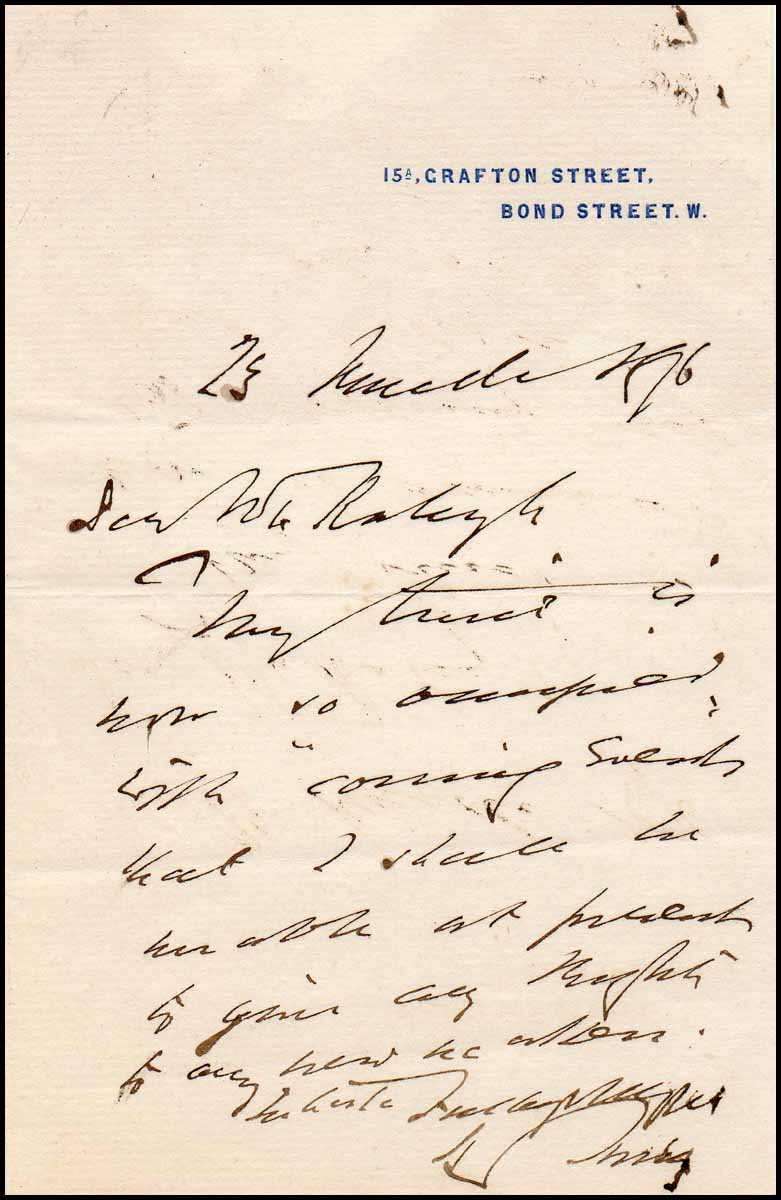 15A, GRAFTON STREET,
BOND STREET. W.
23 March 1876
Dear Mr Raleigh
My time is
now so occupied
with "coming Events
that I shall be
unable at present
to give any thought
to any new
In haste